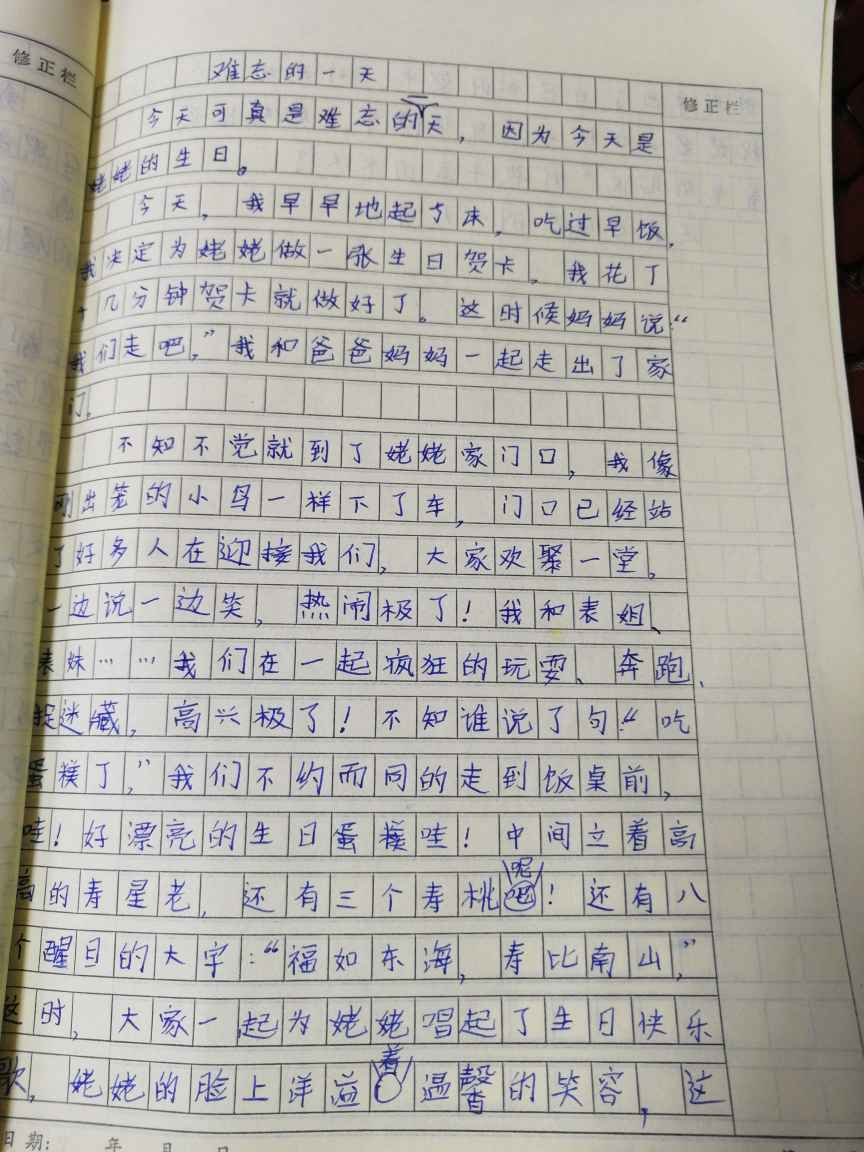 修正栏
修正栏
难忘的一天
今天可真是难忘的一天，因为今天是
姥姥的生日。
今天，我早早地起了床，吃过早饭，
我决定为姥姥做一张生日贺卡，我花了
十几分钟贺卡就做好了。这时候妈妈说：“
我们走吧，”我和爸爸妈妈一起走出了家
门。
不知不觉就到了姥姥家门口，我像
刚出笼的小鸟一样下了车，门口已经站
了好多人在迎接我们，大家欢聚一堂。
一边说一边笑，热闹极了！我和表姐、
表妹……我们在一起疯狂的玩耍、奔跑、
捉迷藏，高兴极了！不知谁说了句“吃
蛋糕了，”我们不约而同的走到饭桌前，
哇！好漂亮的生日蛋糕哇！中间立着高
高的寿星老，还有三个寿桃呢！还有八
个醒目的大字：“福如东海，寿比南山，”
这时，大家一起为姥姥唱起了生日快乐
歌，姥姥的脸上洋溢着温馨的笑容，这
日期：年月日